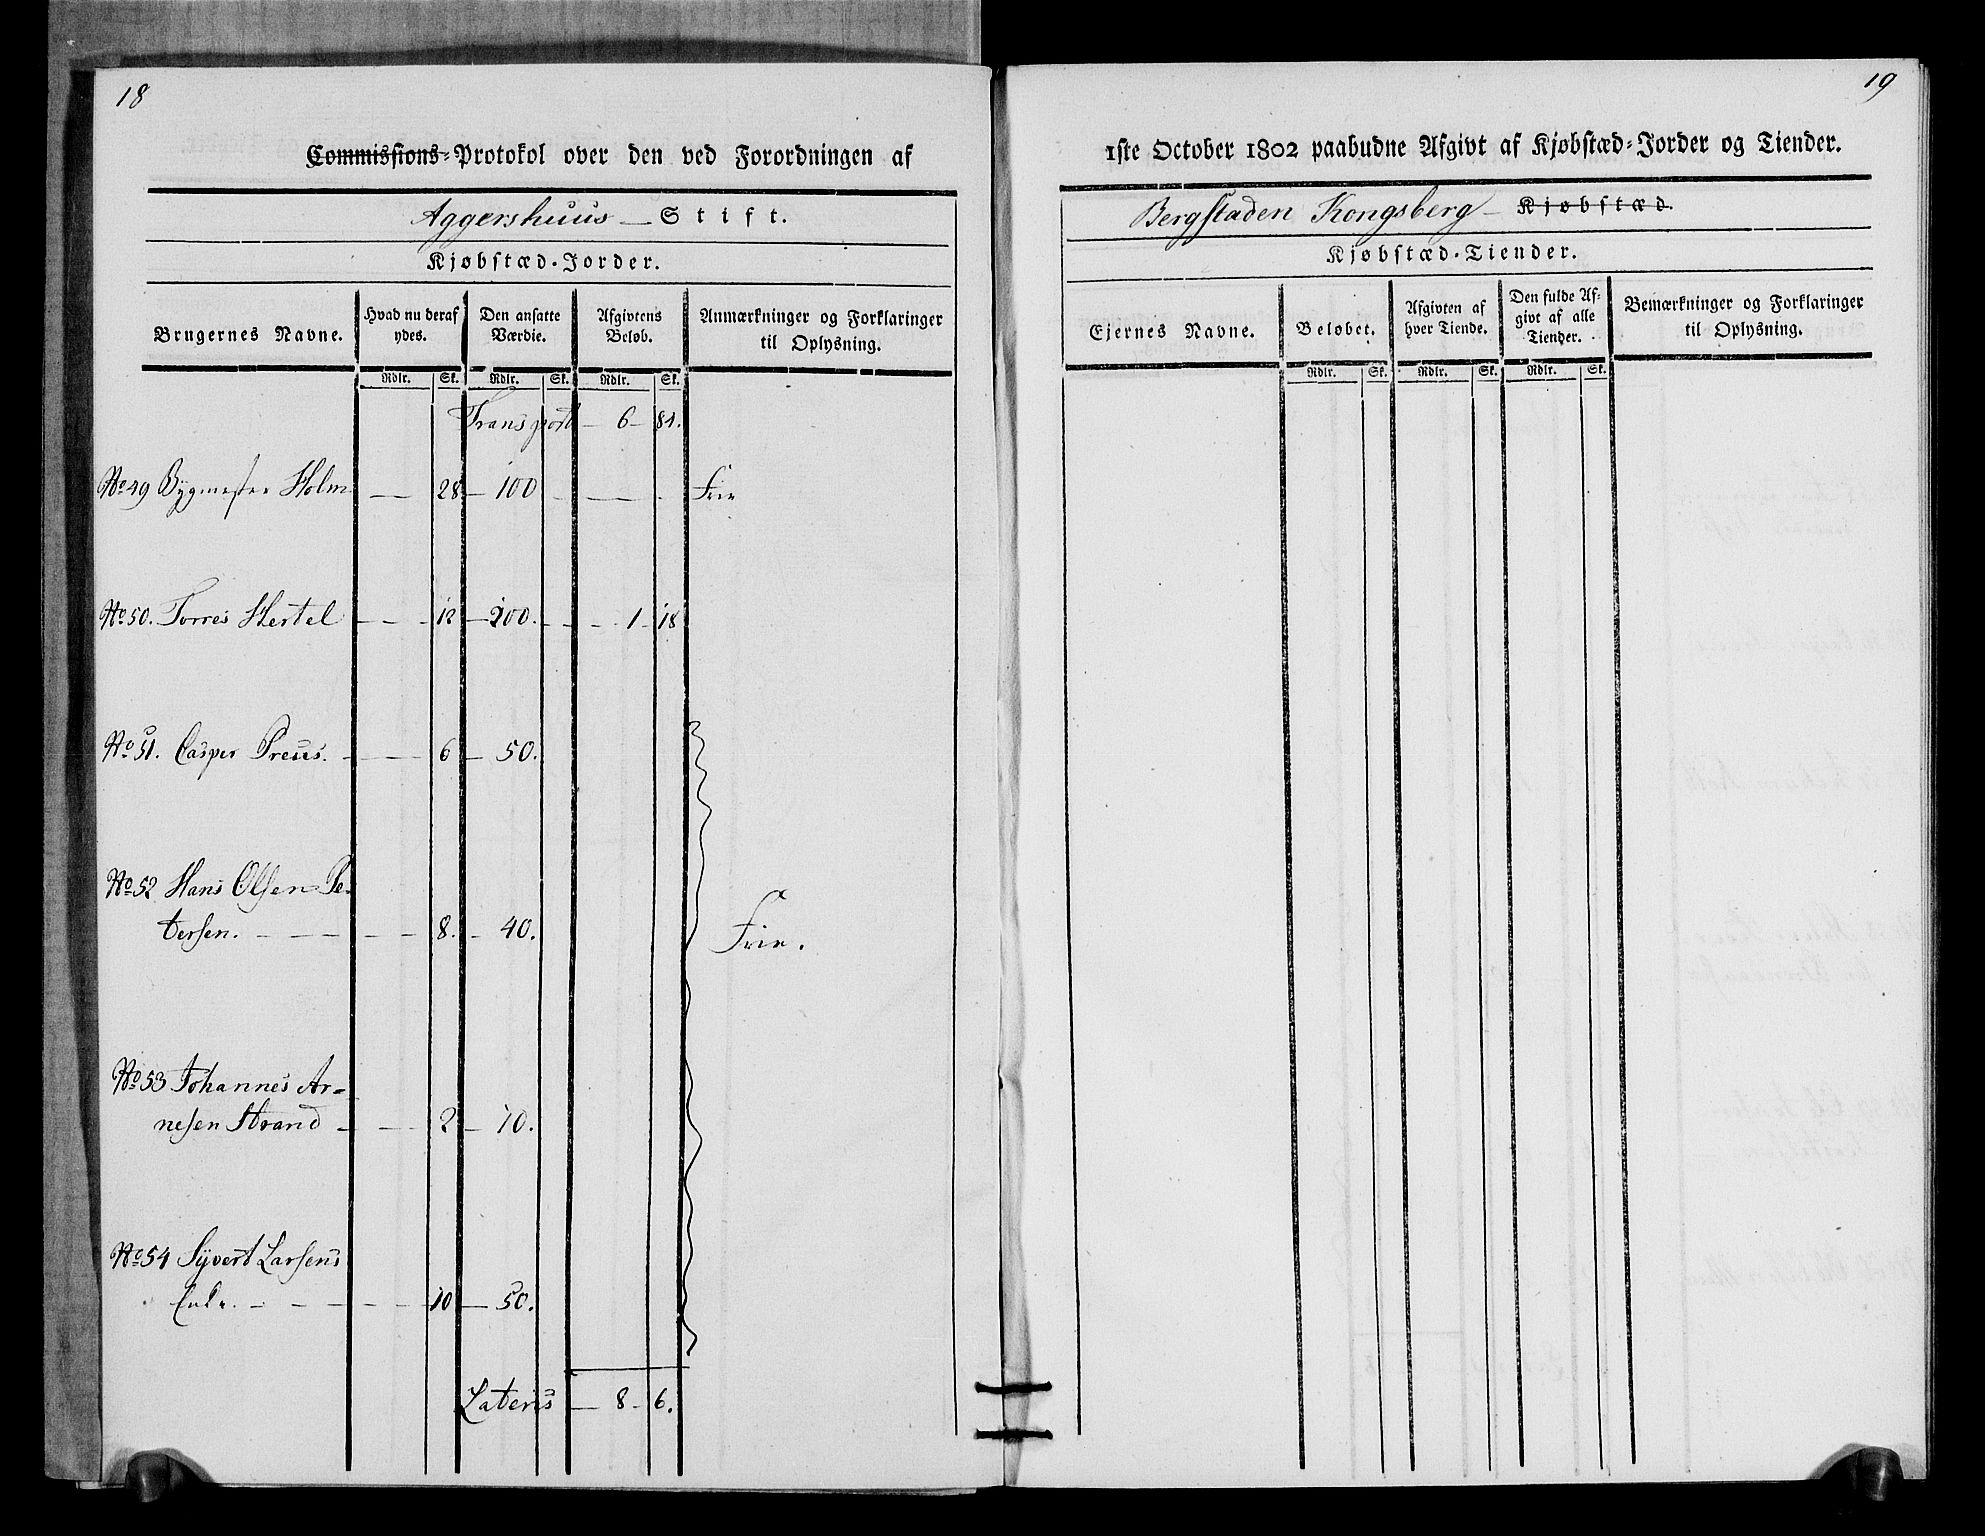 18
Commissions-Protokol over den ved Forordningen af
Aggershuus Stift.
Kjøbstæd-Jorder.
Brugernes Navne. Hvad nu deraf ydes. Den ansatte Værdie. Afgivtens Beløb. Anmærkninger og Forklaringer til Oplysning.
Rdlr. Sk. Rdlr. Sk. Rdlr. Sk.
Transport — 6 — 84.
No 49 Bygmester Holm — 28 — 100 — — . Frie
No 50. Torres Hertel — — 12 — 200. — — 1 — 18
No 51. Casper Preus. — — 6 — 50.
No 52 Hans Olsen Pe-
tersen. — — — 8. — 40. Frie.
No 53 Johannes Ar=
nesen Strand — — 2 — 10.
No 54 Syvert Larsens
Enke. — — — 10 — 50.
Lateris — 8 — 6.
19
1ste October 1802 paabudne Afgivt af Kjøbstæd-Jorder og Tiender.
Bergstaden Kongsberg — Kjøbstæd.
Kjøbstæd-Tiender.
Ejernes Navne. Beløbet. Afgivten af hver Tiende. Den fulde Afgivt af alle Tiender. Bemærkninger og Forklaringer til Oplysning.
Rdlr. Sk. Rdlr. Sk. Rdlr. Sk.